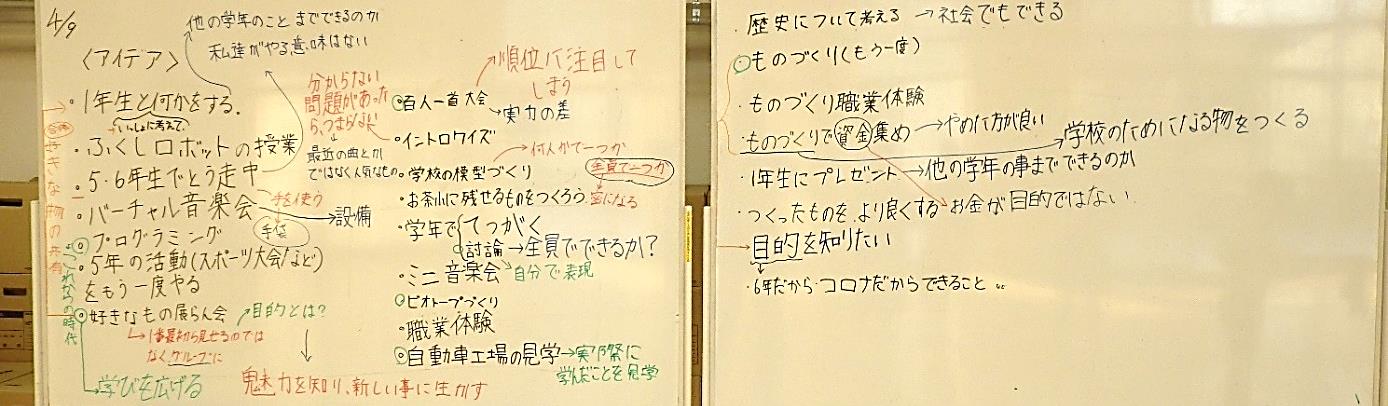 4/9
他の学年のことまでできるのか
私達がやる意味はない
〈アイデア〉
・1年生と何かをする.
いっしょに考えて.
・ふくしロボットの授業
・5・6年生でとう走中
・バーチャル音楽会
手を使う
手袋
設備
・プログラミング
・5年の活動(スポーツ大会など)
をもう一度やる
・好きなもの展らん会
目的とは?
1番最初から見せるのでは
なくグループに
学びを広げる
魅力を知り、新しい事に生かす
好きな物の共有
これからの時代
分からない
問題があった
ら、つまらない
最近の曲とか
ではなく人気なもの
順位に注目して
しまう
百人一首大会
実力の差
・イントロクイズ
何人かで一つか
・学校の模型づくり
全員で一つか
・お茶小に残せるものをつくろう.
宝になる
・学年で
てつがく
討論→全員でできるか?
・ミニ音楽会
自分で表現
ビオトープづくり
・職業体験
自動車工場の見学→
実際に
学んだことを見学
・歴史について考える→社会でもできる
・ものづくり(もう一度)
・ものづくり職業体験
・ものづくりで資金集め→やめた方が良い
学校のためになる物をつくる
・1年生にプレゼント→他の学年の事までできるのか
・つくったものをより良くする
お金が目的ではない.
・目的を知りたい
・6年だから・コロナだからできること